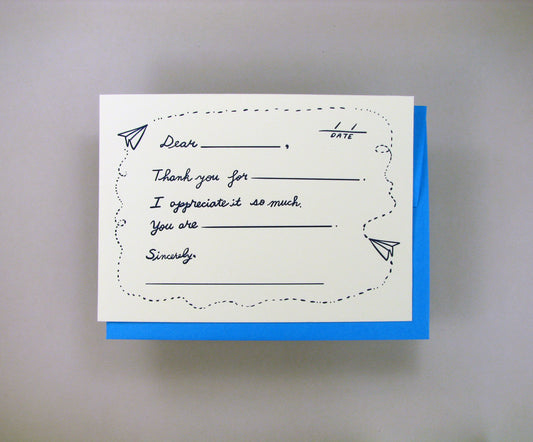 / /
DATE
Dear ____________,
Thank you for ________________.
I appreciate it so much.
You are ____________________.
Sincerely,
____________________________